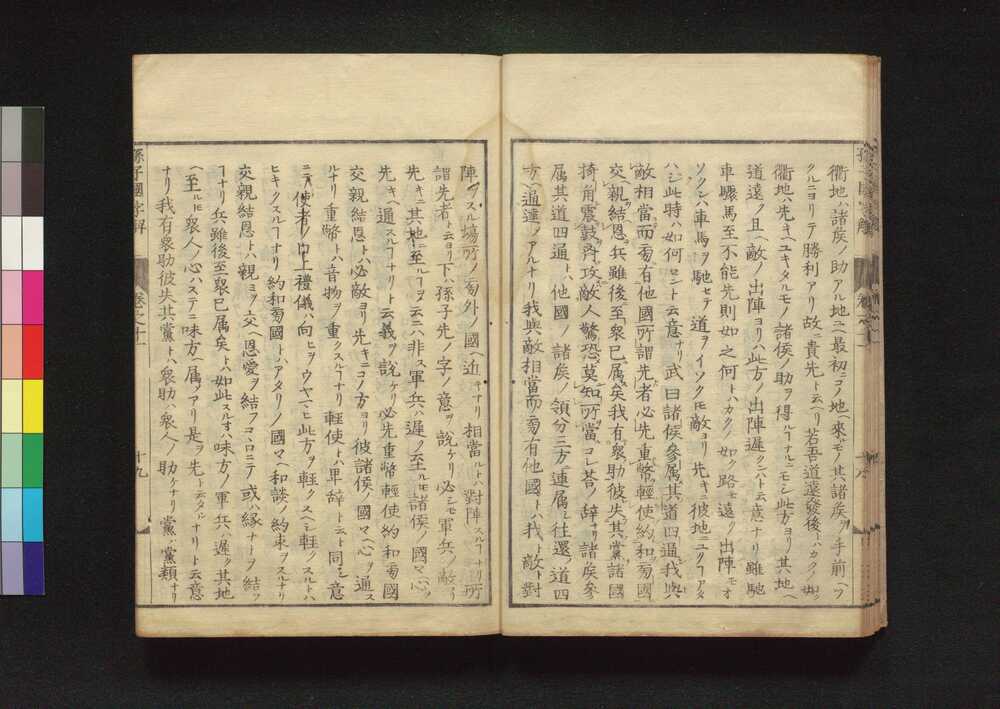 衢地ハ諸矦ノ助アル地ニ最初ニコノ地ヘ來ルモノ其諸矦ヲ手前ヘツ
クルニヨリテ勝利アリ故ニ貴先ト云ヘリ若吾道遠發後トハカクノ如ク
衢地ハ先キヘユキタルモノ諸侯ノ助ヲ得ルコナルニモシ此方ヨリ其地ヘ
道遠ク且ヘ敵ノ出陣ヨリハ此方ノ出陣遲クンバト云意ナリ雖馳
車驟馬至不能先則如之何トハカクノ如ク路モ遠ク出陣モオ
ソクンハ車馬ヲ馳セテ道ヲイソクトモ敵ヨリ先キニ彼地ニユクコアタ
ハシ此時ハ如何セント云意ナリ武曰諸侯參属其道四通我與
敵相當而旁有他國所謂先者必先重幣輕使約和旁國
交親結恩兵雖後至衆已属矣我有衆助彼失其黨諸國
掎角震鼓齊攻敵人驚恐莫知所當コレ荅ノ辞ナリ諸矦參
属其道四通トハ他國ノ諸矦ノ領分三方連属シ往還ノ道四
方ヘ通達シアルナリ我與敵相當而旁有他國トハ我ト敵ト對
陣スル塲所ノ旁外ノ國ヘ近キナリ相當ルトハ對陣スルコナリ所
謂先者ト云ヨリ下ハ孫子先ノ字ノ意ヲ説ケリ必シモ軍兵ノ敵ヨリ
先キニ其地ニ至ルコヲ云ニハ非ス軍兵ハ遲ク至ルモ諸侯ノ國ヘ心ヲ
先キヘ通スルコナリト云義ヲ説ケリ必先重幣輕使約和旁國
交親結恩トハ必敵ヨリ先キニコノ方ヨリ彼諸侯ノ國ヘ心ヲ通ス
ルナリ重幣トハ音物ヲ重クスルコナリ輕使トハ卑辞ト云ト同シ意
ニテ使者ノ口上禮儀ハ向ヒヲウヤマヒ此方ヲ輕クスヘシ輕クスルトハ
ヒキクスルコナリ約和旁國トハアタリノ國ヘ和談ノ約束ヲスルナリ
交親結恩トハ親ミヲ交ヘ恩愛ヲ結フコヽロニテ或ハ縁ナトヲ結フ
コナリ兵雖後至衆已属矣トハ如此スルオハ味方ノ軍兵ハ遲ク其地
ヘ至ルモ衆人ノ心ハステニ味方ヘ属シアリ是ヲ先ト云タルナリト云意
ナリ我有衆助彼失其黨トハ衆助ハ衆人ノ助ケナリ黨ハ黨類ナリ
孫子國字解
卷之十一
十九